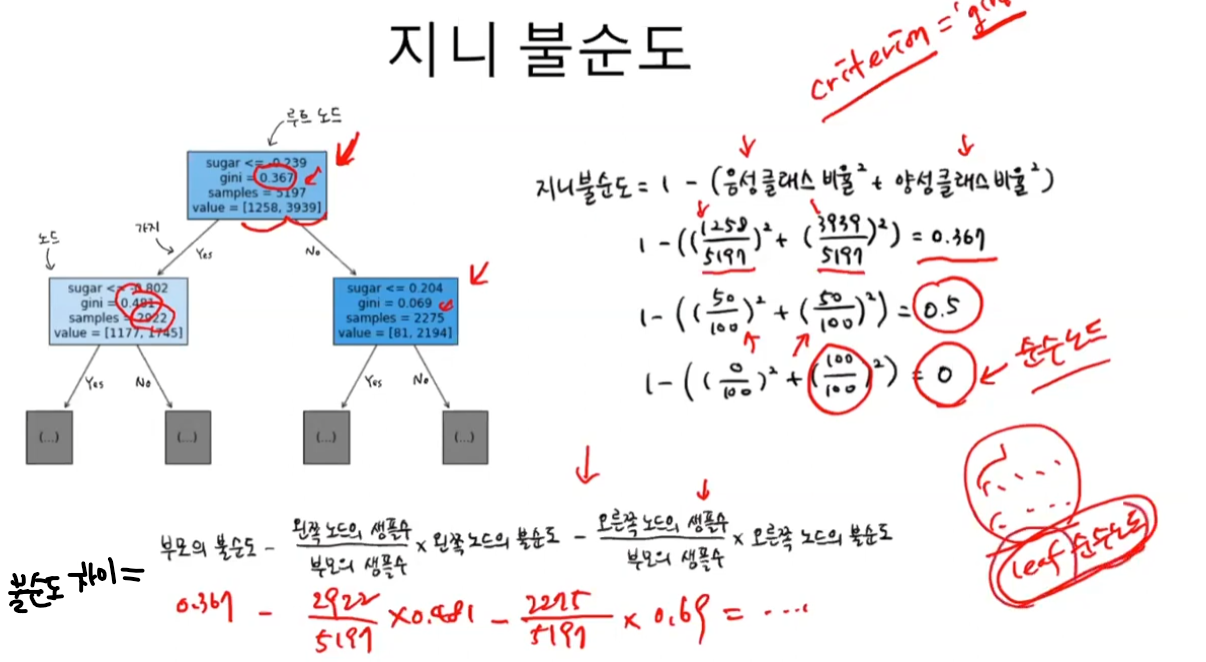 지니 불순도
criterion = 'gini
루트 노드
sugar <= -0.239
gini = 0.367
samples = 5197
value = [1258, 3939]
가지
노드
Yes
No
sugar <= -0.802
gini = 0.481
samples = 2922
value = [1177, 1745]
sugar <= 0.204
gini = 0.069
samples = 2275
value = [81, 2194]
Yes
No
Yes
No
(...)
(...)
(...)
(...)
지니불순도 = 1 - (음성 클래스 비율² + 양성 클래스 비율²)
1 - ((1258/5197)² + (3939/5197)²) = 0.367
1 - ((50/100)² + (50/100)²) = 0.5
1 - ((0/100)² + (100/100)²) = 0
순수노드
leaf 순수노드
불순도 차이 =
부모의 불순도 - 왼쪽 노드의 샘플수/부모의 샘플수 × 왼쪽 노드의 불순도 - 오른쪽 노드의 샘플수/부모의 샘플수 × 오른쪽 노드의 불순도
0.367 - 2922/5197 × 0.481 - 2275/5197 × 0.69 = ....